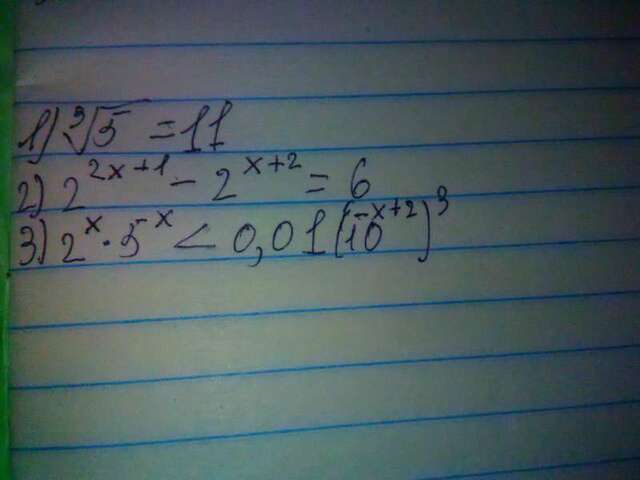 1) ³√5 = 11
2) 2^(2x+1) - 2^(x+2) = 6
3) 2^x · 5^x < 0,01(10^(-x+2))^3